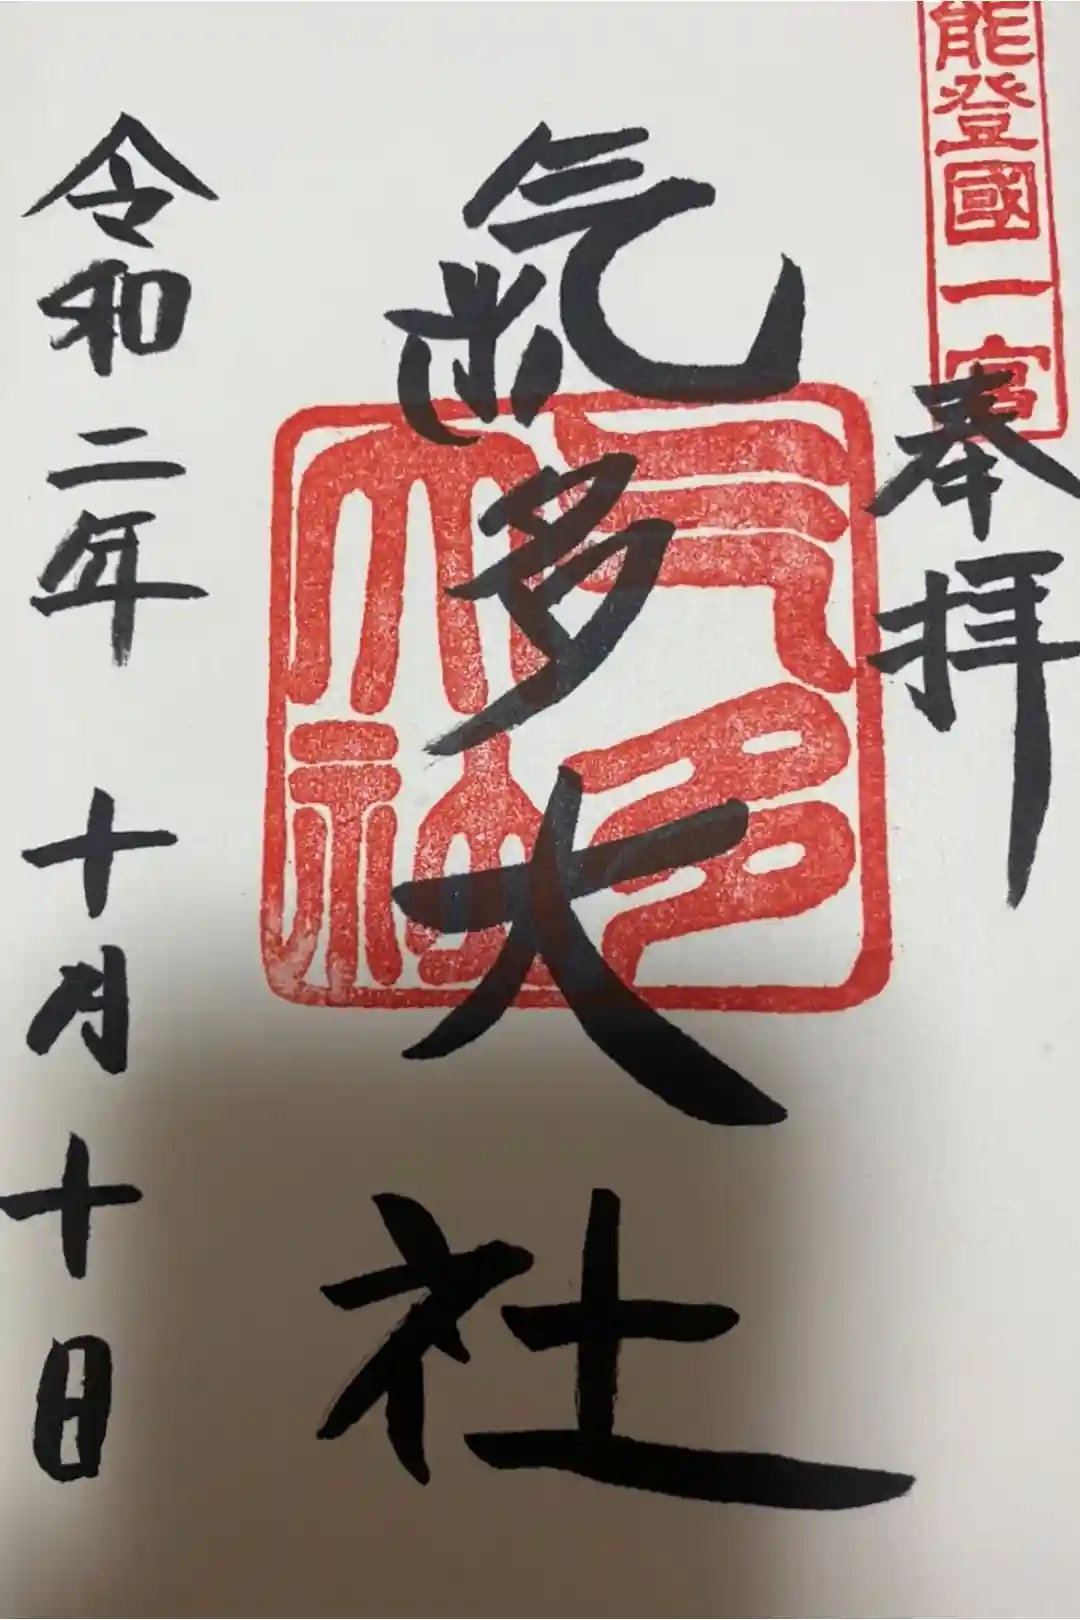 能登國一宮
奉拝
氣多大社
气多大社
令和二年 十月十日